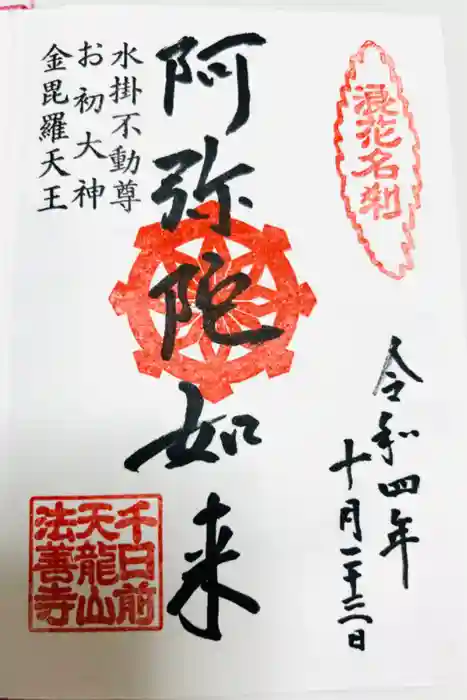 浪花名刹
令和四年
十月二十二日
阿弥陀如来
水掛不動尊
お初大神
金毘羅天王
千日前
天龍山
法善寺